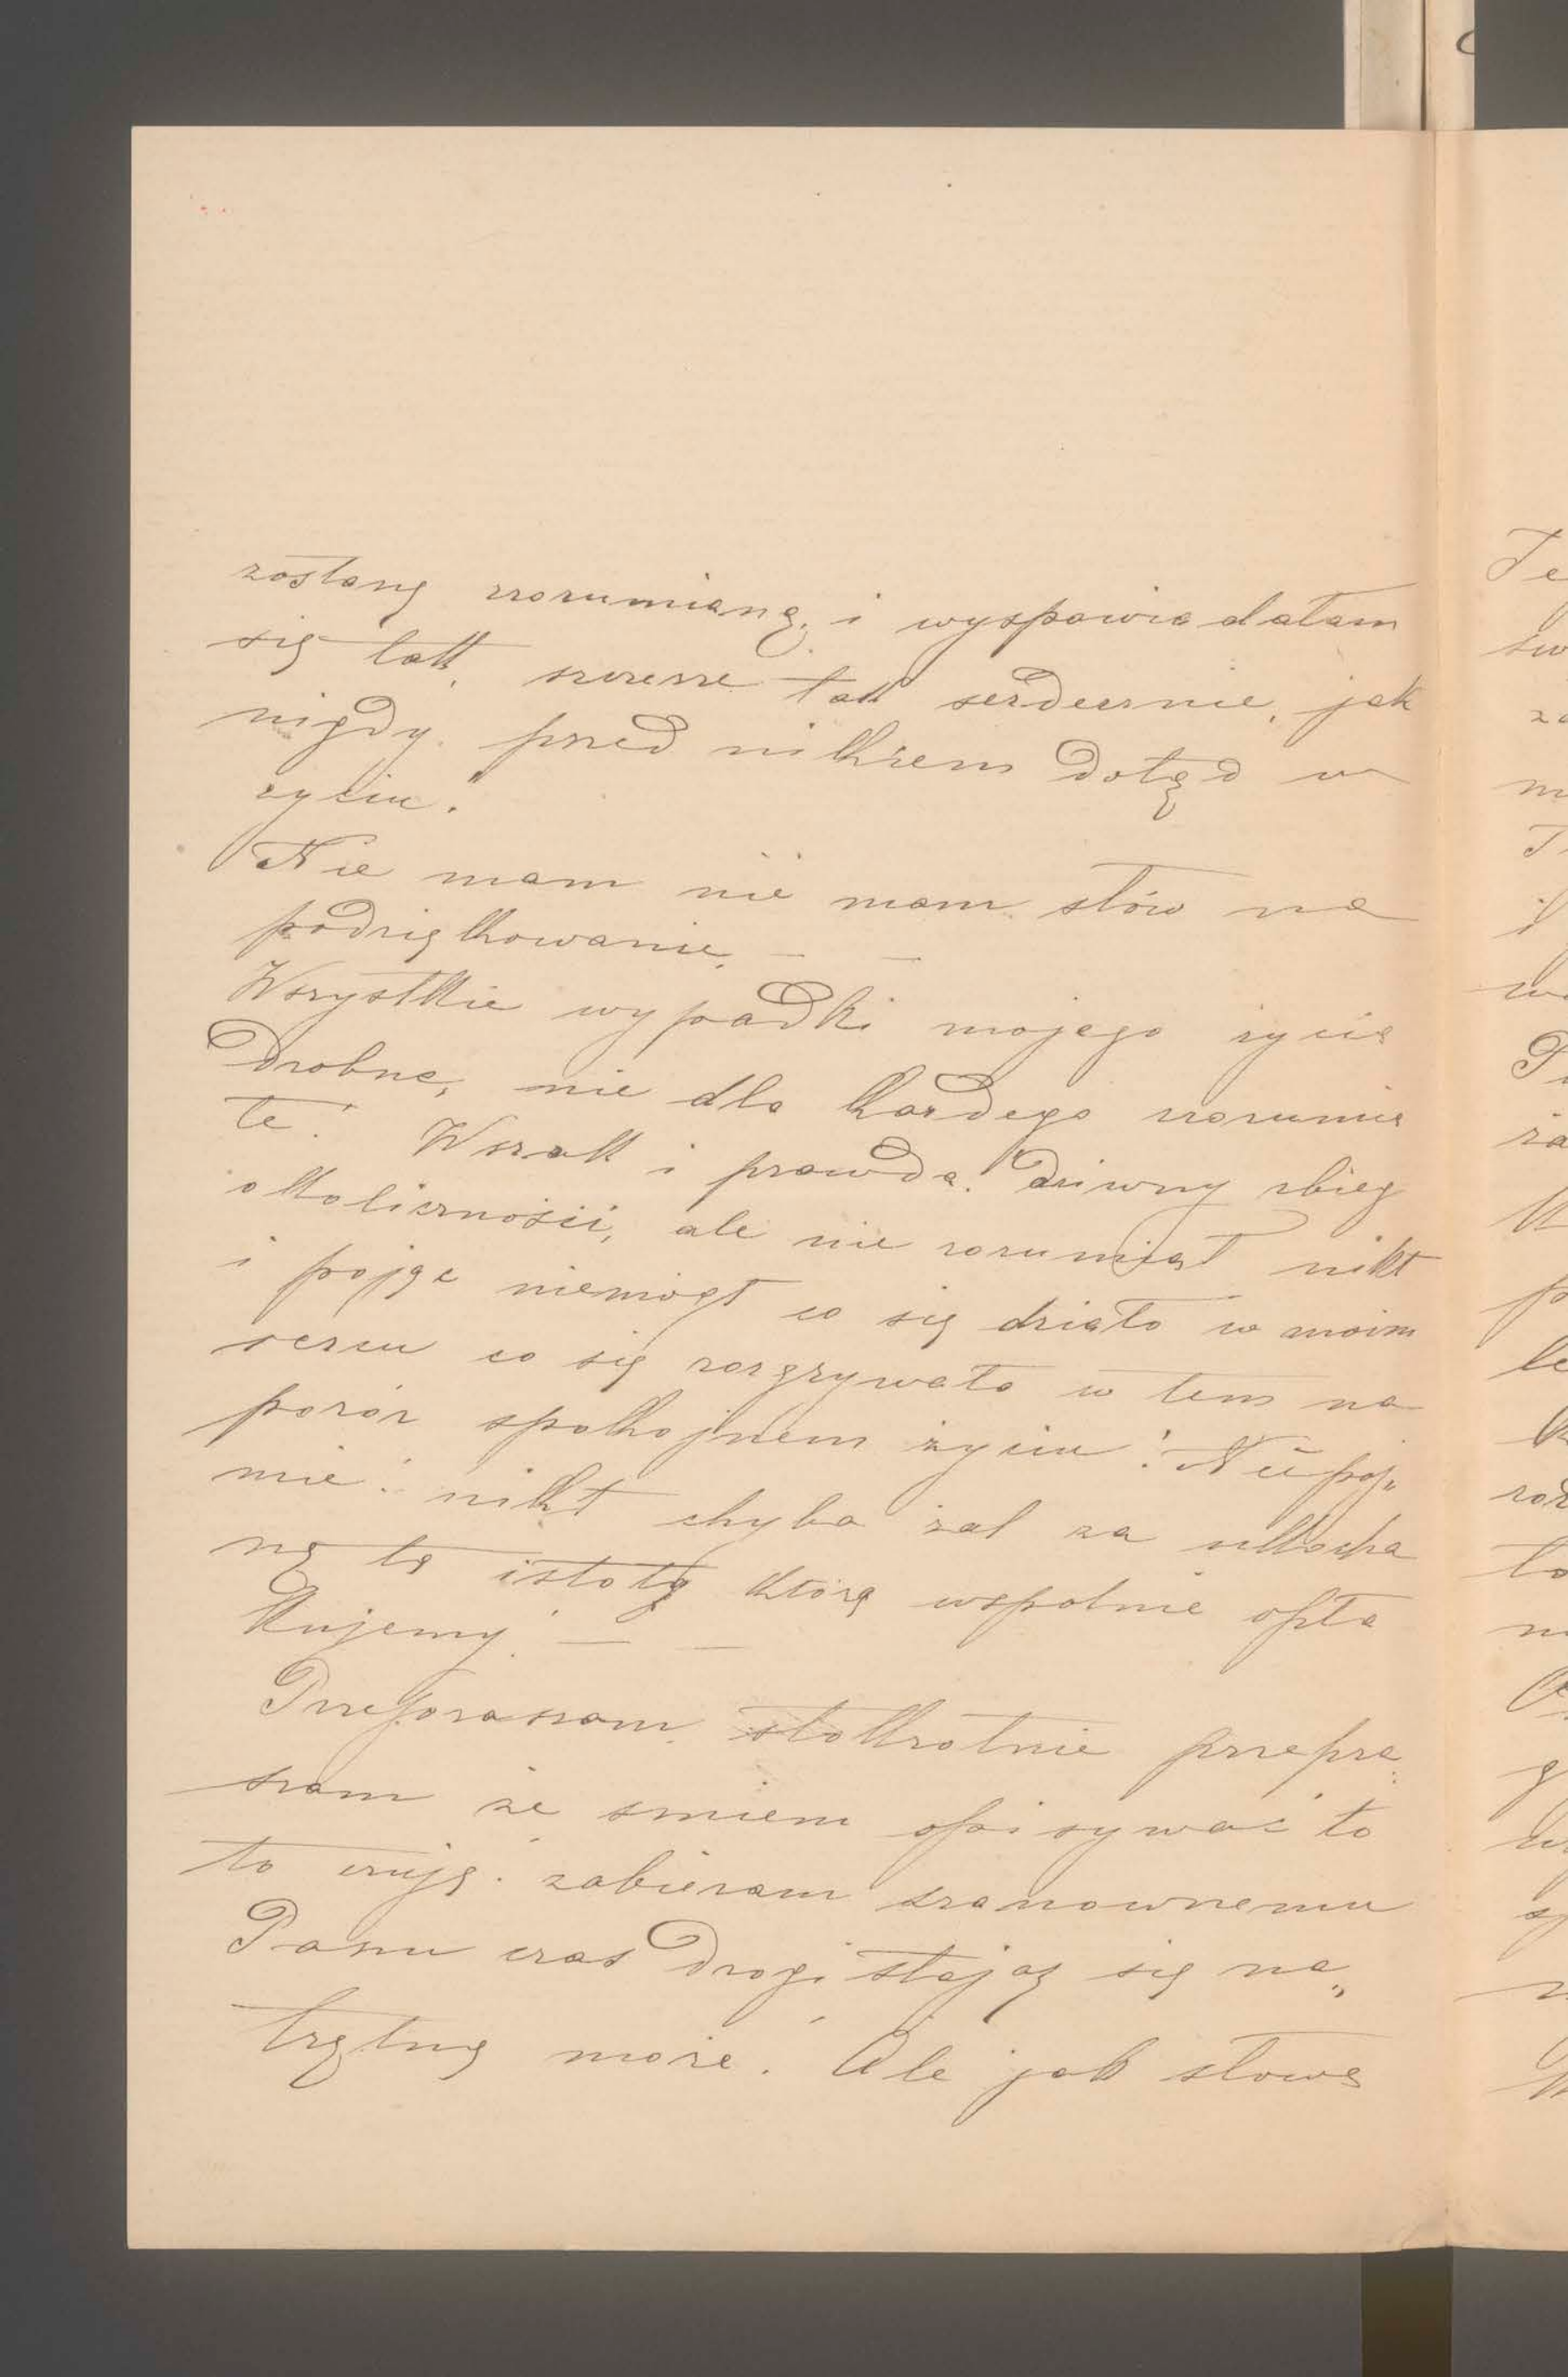 zostanę zrozumianą; i wyspowiadałam
się tak, szczerze tak serdecznie, jak
nigdy przed nikiem dotąd w
życiu."
Nie mam nie mam słów na
podziękowanie, — —
Wszystkie wypadki mojego życia
drobne, nie dla każdego zrozumia
te! Wszak i prawda! dziwny zbieg
okoliczności, ale nie rozumiał nikt
i pojąc niemógł co się działo w moim
sercu co się rozgrywało w tem na
pozór spokojnem życiu! Nie poj„
mie! nikt chyba żal za ukocha
ną tą istotą którą wspólnie opła
kujemy! — —
Przepraszam stokrotnie przepra„
szam że smiem opisywać to
to czuję. zabieram szanownemu
Panu czas drogi stając się na„
trętną może. Ale jak słowa
Te